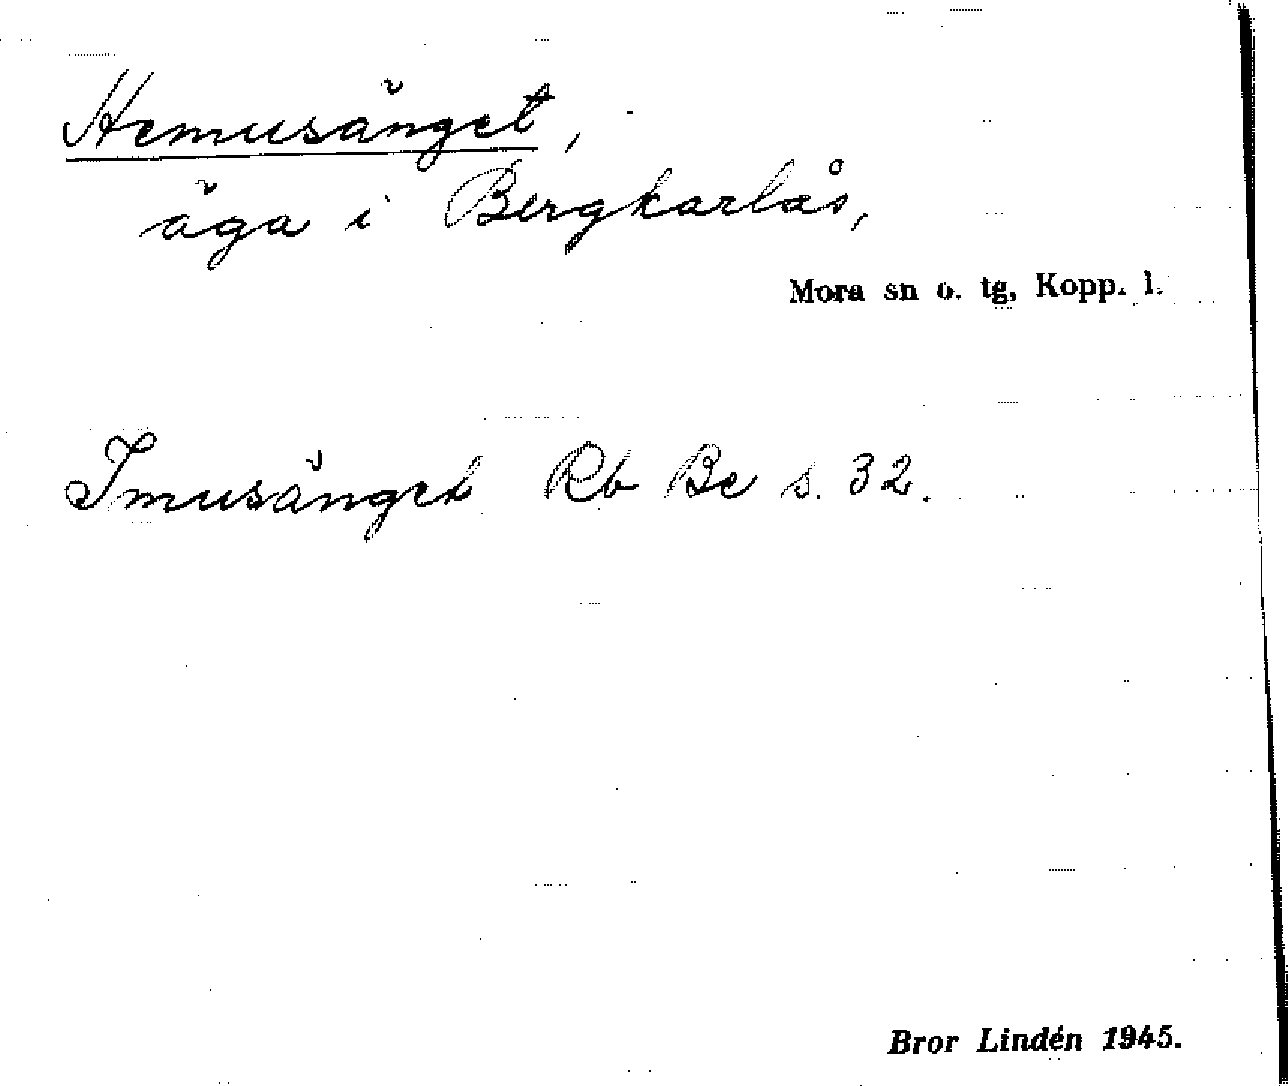 Hemusänget,
äga i Bergkarlås,
Mora sn o. tg, Kopp. l.
Imusänget Rb Be s. 32.
Bror Lindén 1945.